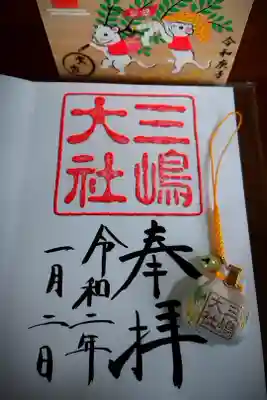 令和庚子
三嶋
大社
奉拝
令和二年
一月二日
三嶋
大社